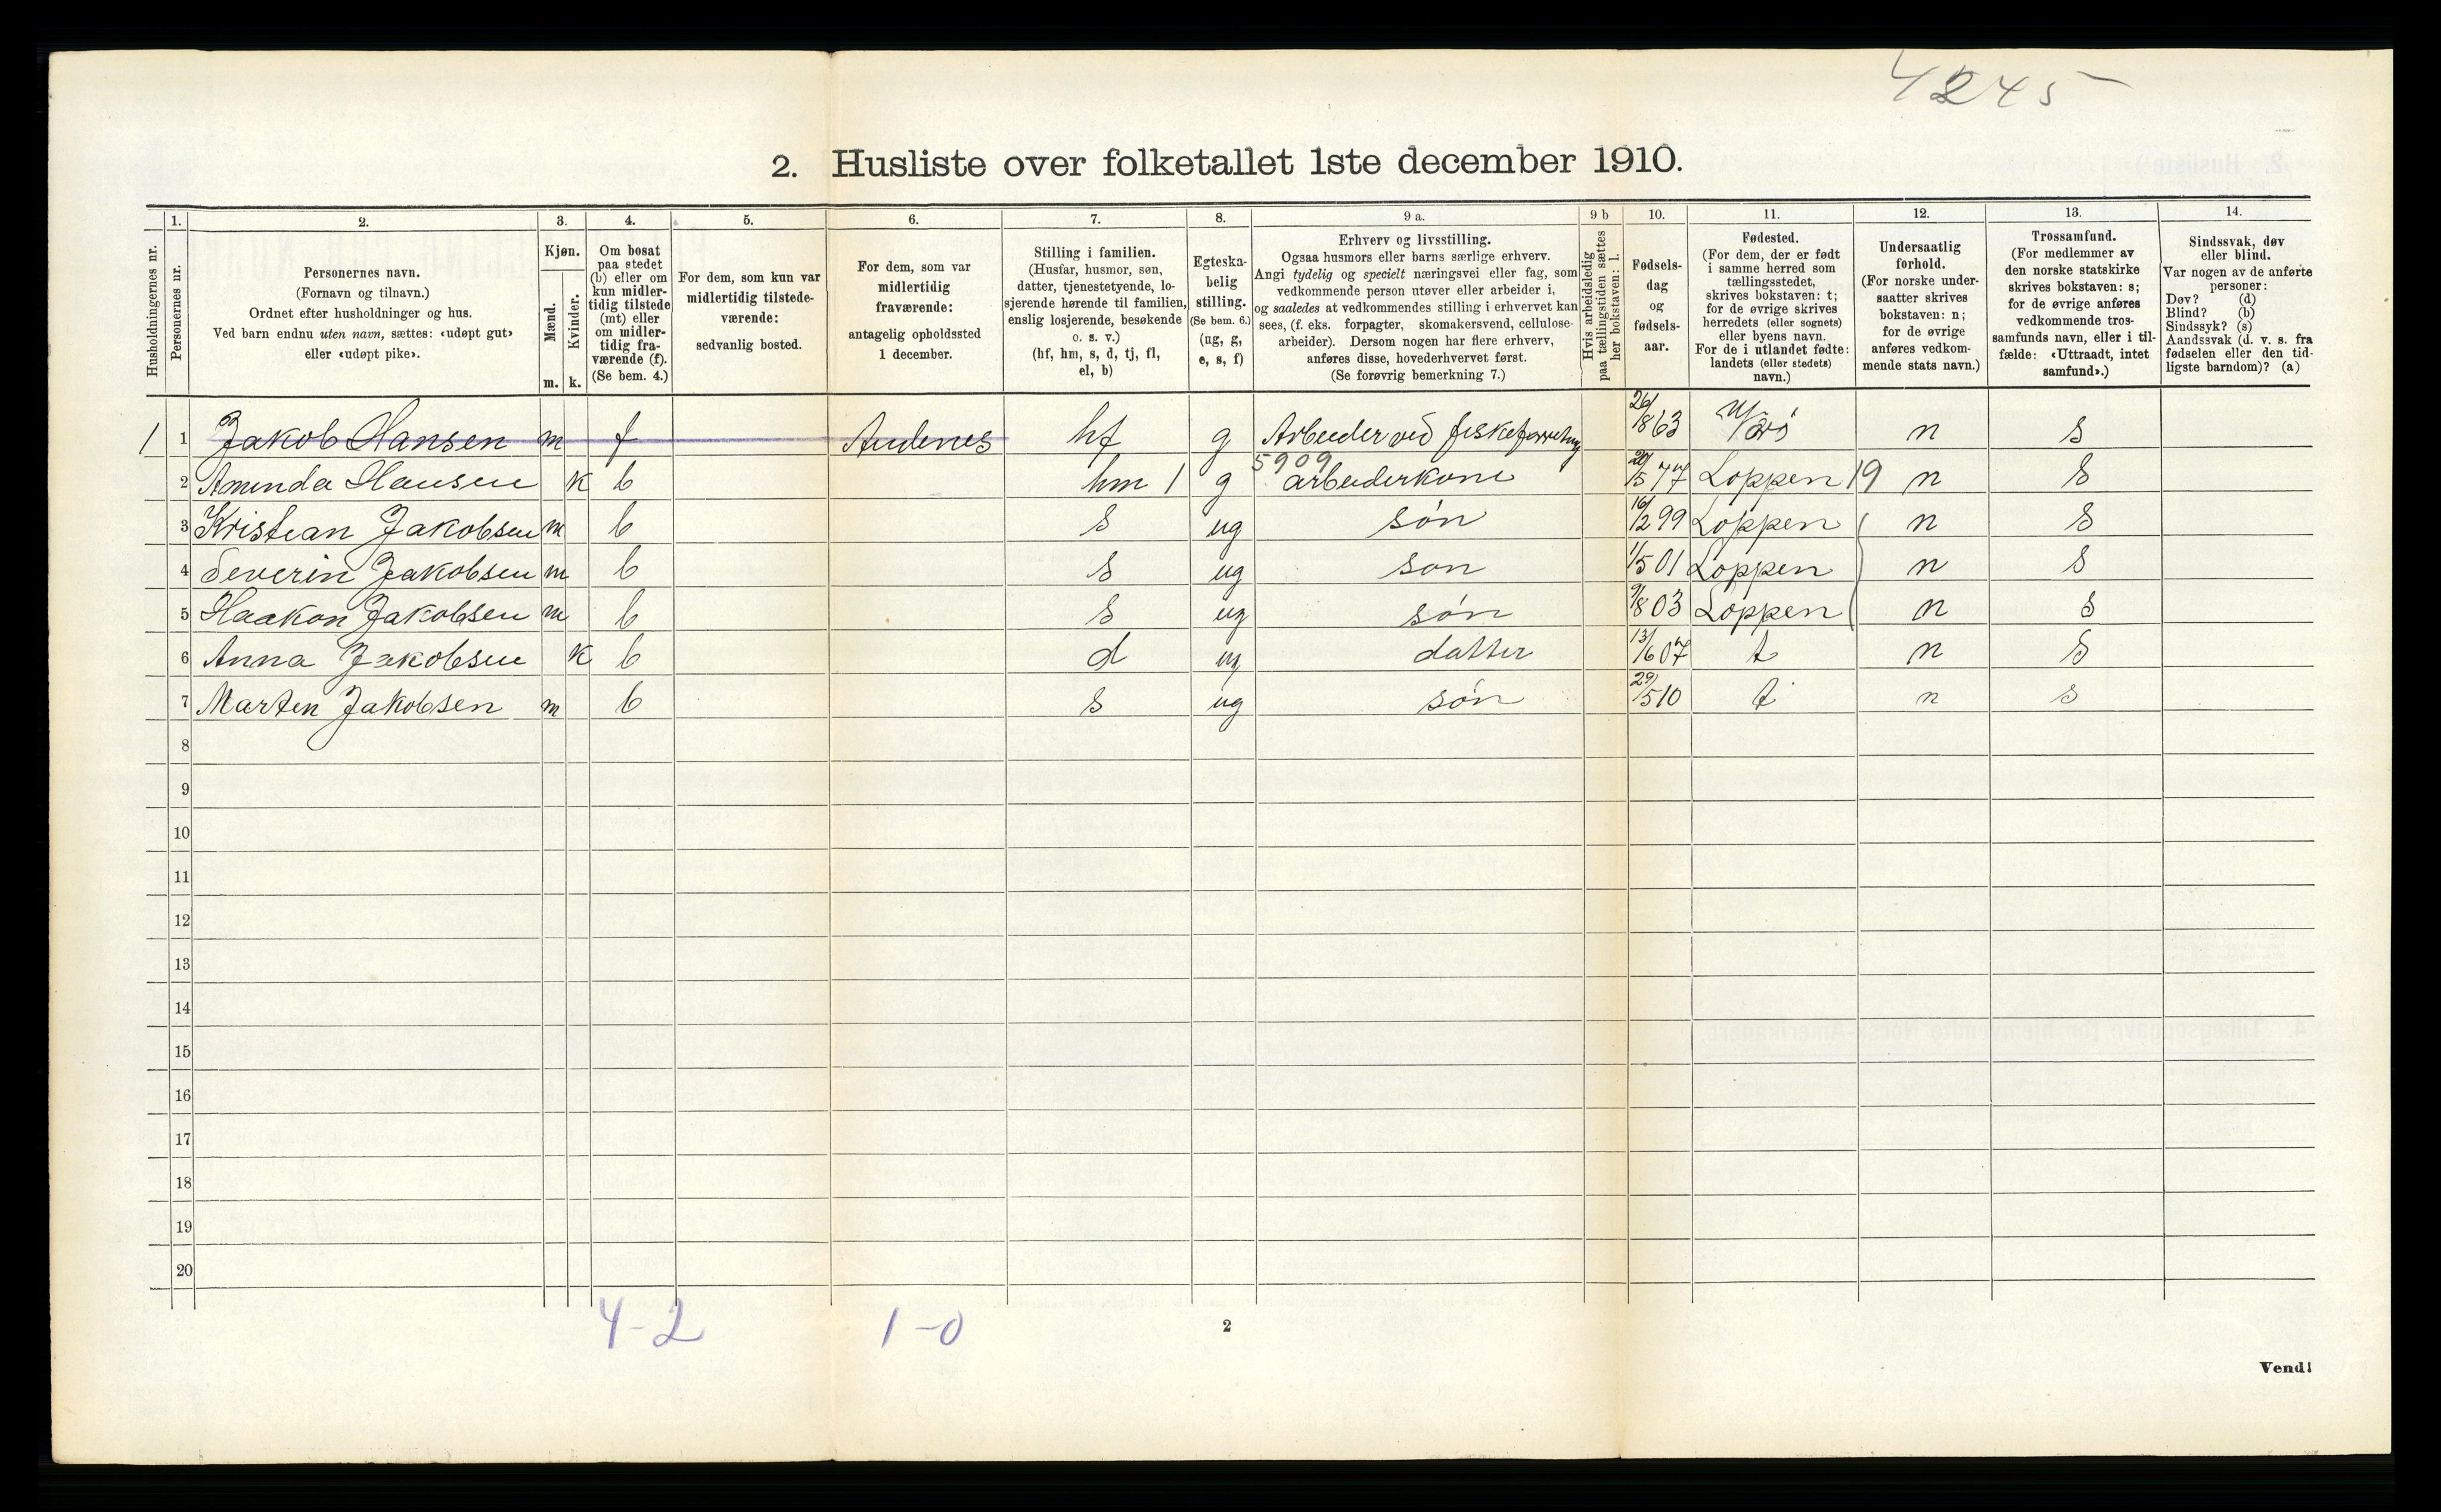 4245
2. Husliste over folketallet 1ste december 1910.
Husholdningernes nr.
1.
Personernes nr.
2.
Personernes navn.
(Fornavn og tilnavn.)
Ordnet efter husholdninger og hus.
Ved barn endnu uten navn, sættes: «udøpt gut»
eller «udøpt pike».
3.
Kjøn.
Mænd.
Kvinder.
m. k.
4.
Om bosat
paa stedet
(b) eller om
kun midler-
tidig tilstede
(mt) eller
om midler-
tidig fra-
værende (f).
(Se bem. 4.)
5.
For dem, som kun var
midlertidig tilstede-
værende:
sedvanlig bosted.
6.
For dem, som var
midlertidig
fraværende:
antagelig opholdssted
1 december.
7.
Stilling i familien.
(Husfar, husmor, søn,
datter, tjenestetyende, lo-
sjerende hørende til familien,
enslig losjerende, besøkende
o. s. v.)
(hf, hm, s, d, tj, fl,
el, b)
8.
Egteska-
belig
stilling.
(Se bem. 6.)
(ug, g,
e, s, f)
9 a.
Erhverv og livsstilling.
Ogsaa husmors eller barns særlige erhverv.
Angi tydelig og specielt næringsvei eller fag, som
vedkommende person utøver eller arbeider i,
og saaledes at vedkommendes stilling i erhvervet kan
sees, (f. eks. forpagter, skomakersvend, cellulose-
arbeider). Dersom nogen har flere erhverv,
anføres disse, hovederhvervet først.
(Se forøvrig bemerkning 7.)
9 b
Hvis arbeidsledig
paa tællingstiden sættes
her bokstaven: l.
10.
Fødsels-
dag
og
fødsels-
aar.
11.
Fødested.
(For dem, der er født
i samme herred som
tællingsstedet,
skrives bokstaven: t;
for de øvrige skrives
herredets (eller sognets)
eller byens navn.
For de i utlandet fødte:
landets (eller stedets)
navn.)
12.
Undersaatlig
forhold.
(For norske under-
saatter skrives
bokstaven: n;
for de øvrige
anføres vedkom-
mende stats navn.)
13.
Trossamfund.
(For medlemmer av
den norske statskirke
skrives bokstaven: s;
for de øvrige anføres
vedkommende tros-
samfunds navn, eller i til-
fælde: «Uttraadt, intet
samfund».)
14.
Sindssvak, døv
eller blind.
Var nogen av de anførte
personer:
Døv? (d)
Blind? (b)
Sindssyk? (s)
Aandssvak (d. v. s. fra
fødselen eller den tid-
ligste barndom)? (a)
1 1 Jakob Hansen m f Andenes hf g Arbeider ved fiskeforretning 26/8 63 n s
2 Amanda Hansen k b hm 1 g 5909 arbeiderkone 20/5 77 Loppen 19 n s
3 Kristian Jakobsen m b s ug søn 16/2 99 Loppen n s
4 Severin Jakobsen m b s ug søn 1/5 01 Loppen n s
5 Haakon Jakobsen m b s ug søn 9/8 03 Loppen n s
6 Anna Jakobsen k b d ug datter 13/6 07 t n s
7 Marten Jakobsen m b s ug søn 29/5 10 t n s
8
9
10
11
12
13
14
15
16
17
18
19
20
4-2 1-0
2
Vend!